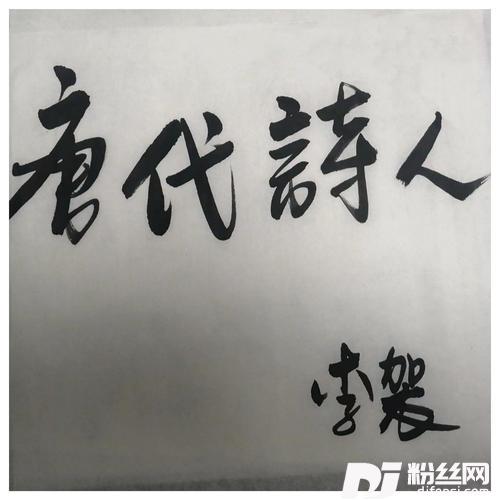 唐代詩人
李
粉丝网
difensi.com